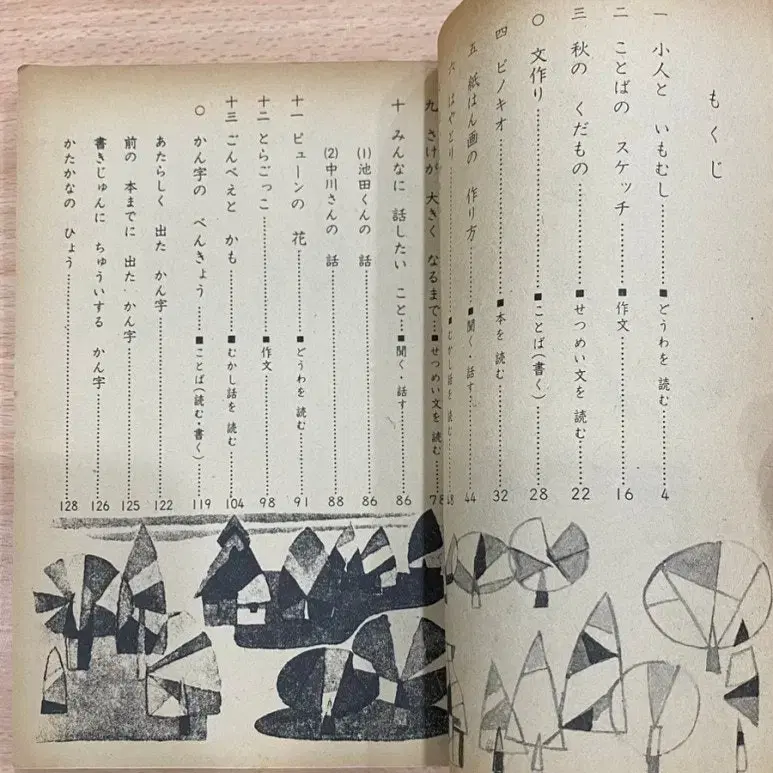 もくじ
一 小人と いもむし……■どうわを 読む……4
二 ことばの スケッチ……■作文……16
三 秋の くだもの……■せつめい文を 読む……22
○ 文作り……■ことば(書く)……28
四 ピノキオ……■本を 読む……32
五 紙はん画の 作り方……■聞く・話す……44
六 はやとり……■むかし話を 読む……48
九 さけが 大きく なるまで……■せつめい文を 読む……78
十 みんなに 話したい こと……■聞く・話す……86
(1)池田くんの 話……86
(2)中川さんの 話……88
十一 ピューンの 花……■どうわを 読む……91
十二 とらごっこ……■作文……98
十三 ごんべえと かも……■むかし話を 読む……104
○ かん字の べんきょう……■ことば(読む・書く)……119
あたらしく 出た かん字……122
前の 本までに 出た かん字……125
書きじゅんに ちゅういする かん字……126
かたかなの ひょう……128